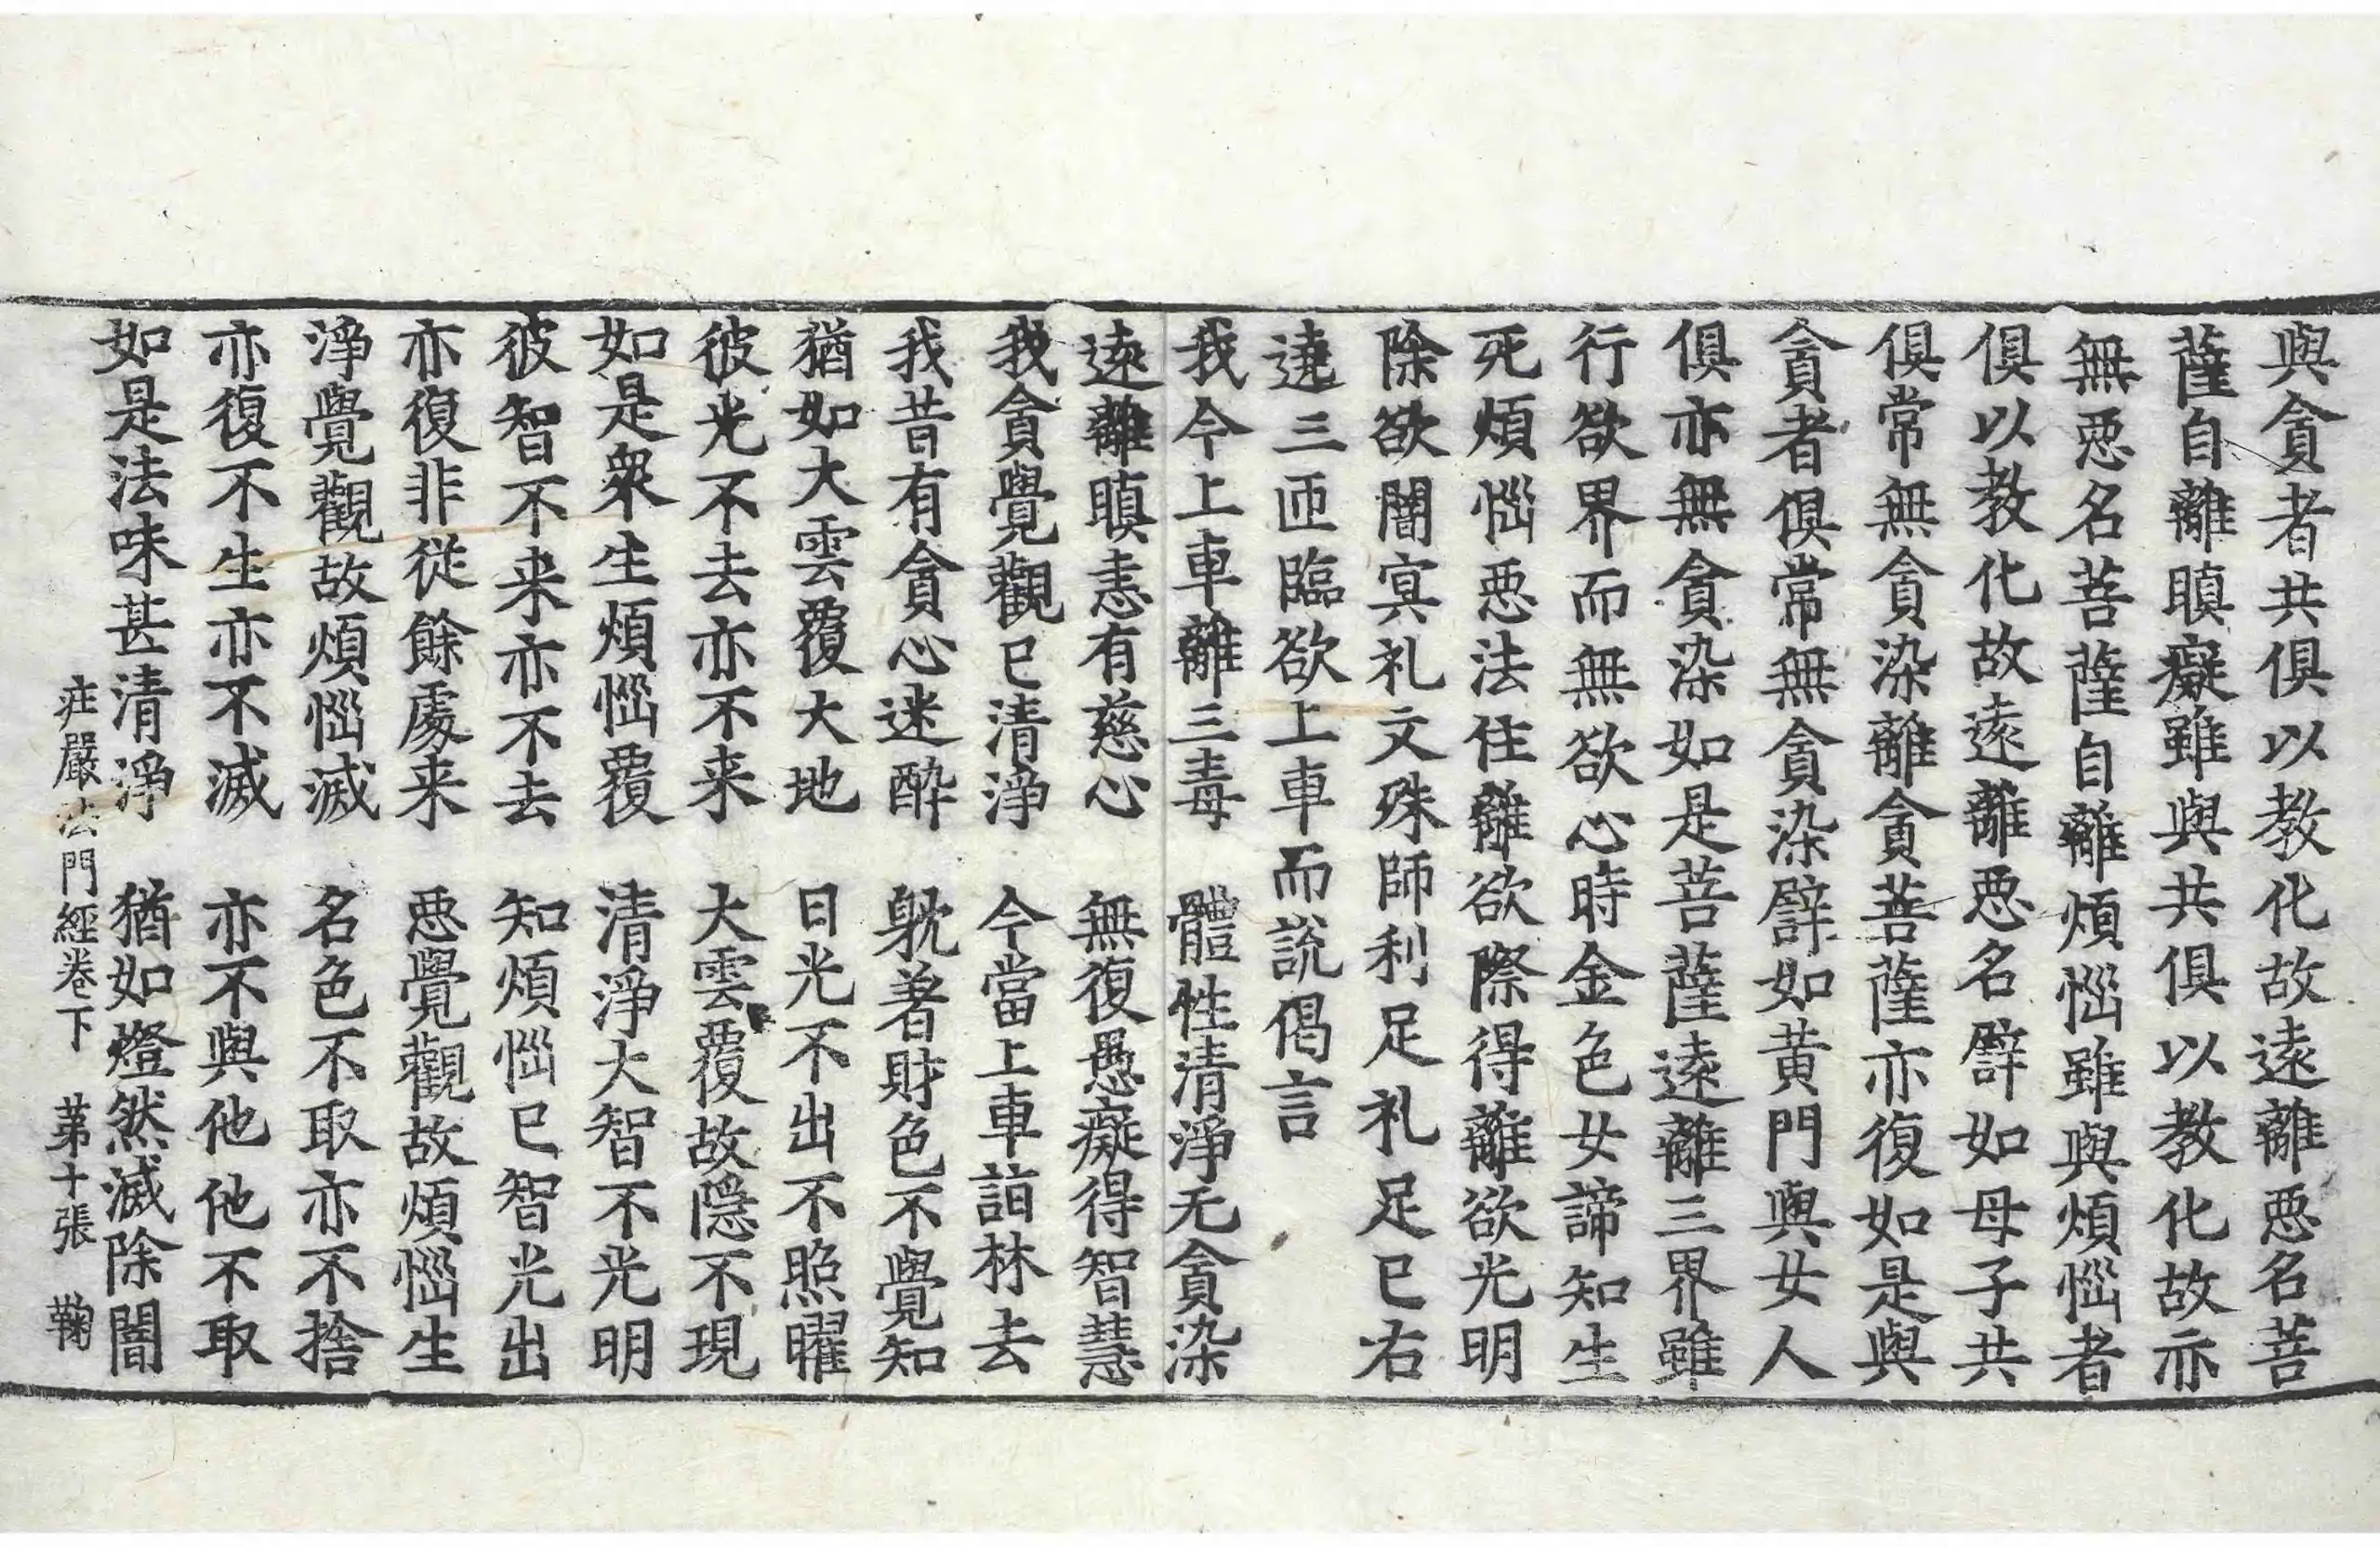 與貪者共俱以教化故遠離惡名菩
薩自離瞋癡雖與共俱以教化故亦
無惡名菩薩自離煩惱雖與煩惱者
俱以教化故遠離惡名譬如母子共
俱常無貪染離貪菩薩亦復如是與
貪者俱常無貪染譬如黃門與女人
俱亦無貪染如是菩薩遠離三界雖
行欲界而無欲心時金色女諦知生
死煩惱惡法住離欲際得離欲光明
除欲闇冥礼文殊師利足礼足已右
遶三匝臨欲上車而說偈言
我今上車離三毒　體性清淨无貪染
遠離瞋恚有慈心　無復愚癡得智慧
我貪覺觀已清淨　今當上車詣林去
我昔有貪心迷醉　躭著財色不覺知
猶如大雲覆大地　日光不出不照曜
彼光不去亦不来　大雲覆故隱不現
如是衆生煩惱覆　清淨大智不光明
彼智不来亦不去　知煩惱已智光出
亦復非從餘處来　惡覺觀故煩惱生
淨覺觀故煩惱滅　名色不取亦不捨
亦復不生亦不滅　亦不與他他不取
如是法味甚清淨　猶如燈然滅除闇
庄嚴法門經卷下　第十張　鞠